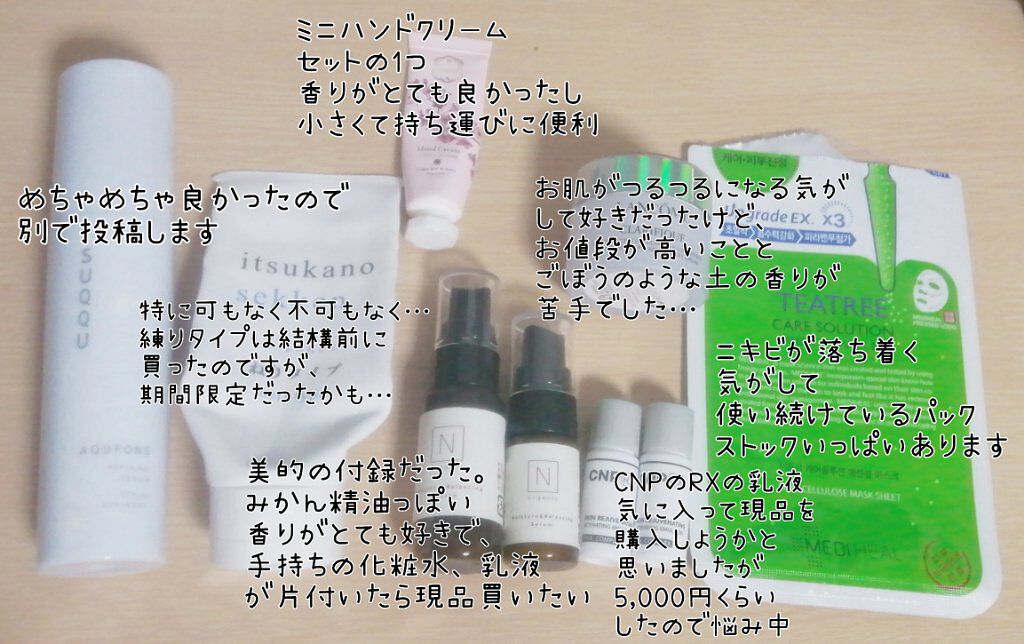 ミニハンドクリーム
セットの1つ
香りがとても良かったし
小さくて持ち運びに便利
Hand Cream
めちゃめちゃ良かったので
別で投稿します
SUQQU
AQUFONS
itsukano
sekken
特に可もなく不可もなく…
練りタイプは結構前に
買ったのですが、
期間限定だったかも…
お肌がつるつるになる気が
して好きだったけど、
お値段が高いことと
ごぼうのような土の香りが
苦手でした…
케어·피부진정
upgrade EX. x3
파라벤무첨가
TEATREE
CARE SOLUTION
ニキビが落ち着く
気がして
使い続けているパック
ストックいっぱいあります
CELLULOSE MASK SHEET
MEDIHEAL
美的の付録だった。
みかん精油っぽい
香りがとても好きで、
手持ちの化粧水、乳液
が片付いたら現品買いたい
N
N
organic
Moisture&Balancing
Serum
CNP
CNPのRXの乳液
気に入って現品を
購入しようかと
思いましたが
5,000円くらい
したので悩み中